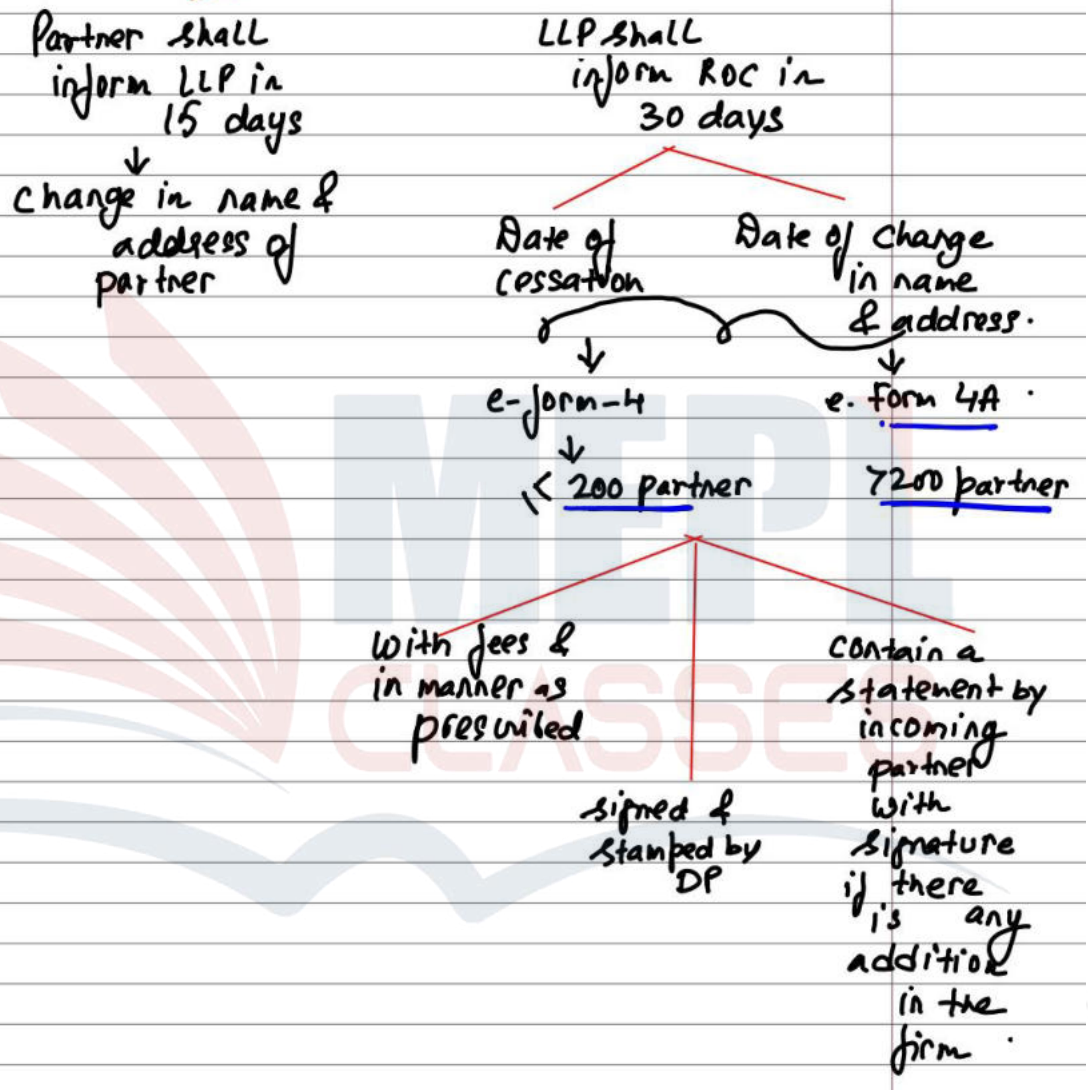 Partner shall
inform LLP in
15 days
↓
change in name &
address of
partner
LLP shall
inform ROC in
30 days
Date of
cessation
Date of change
in name
& address.
↓
e-form-4
↓
200 partner
↓
e. form 4A
>200 partner
with fees &
in manner as
prescribed
signed &
stamped by
DP
contain a
statement by
incoming
partner
with
signature
if there
is any
addition
in the
firm.
MEPL
CLASSES